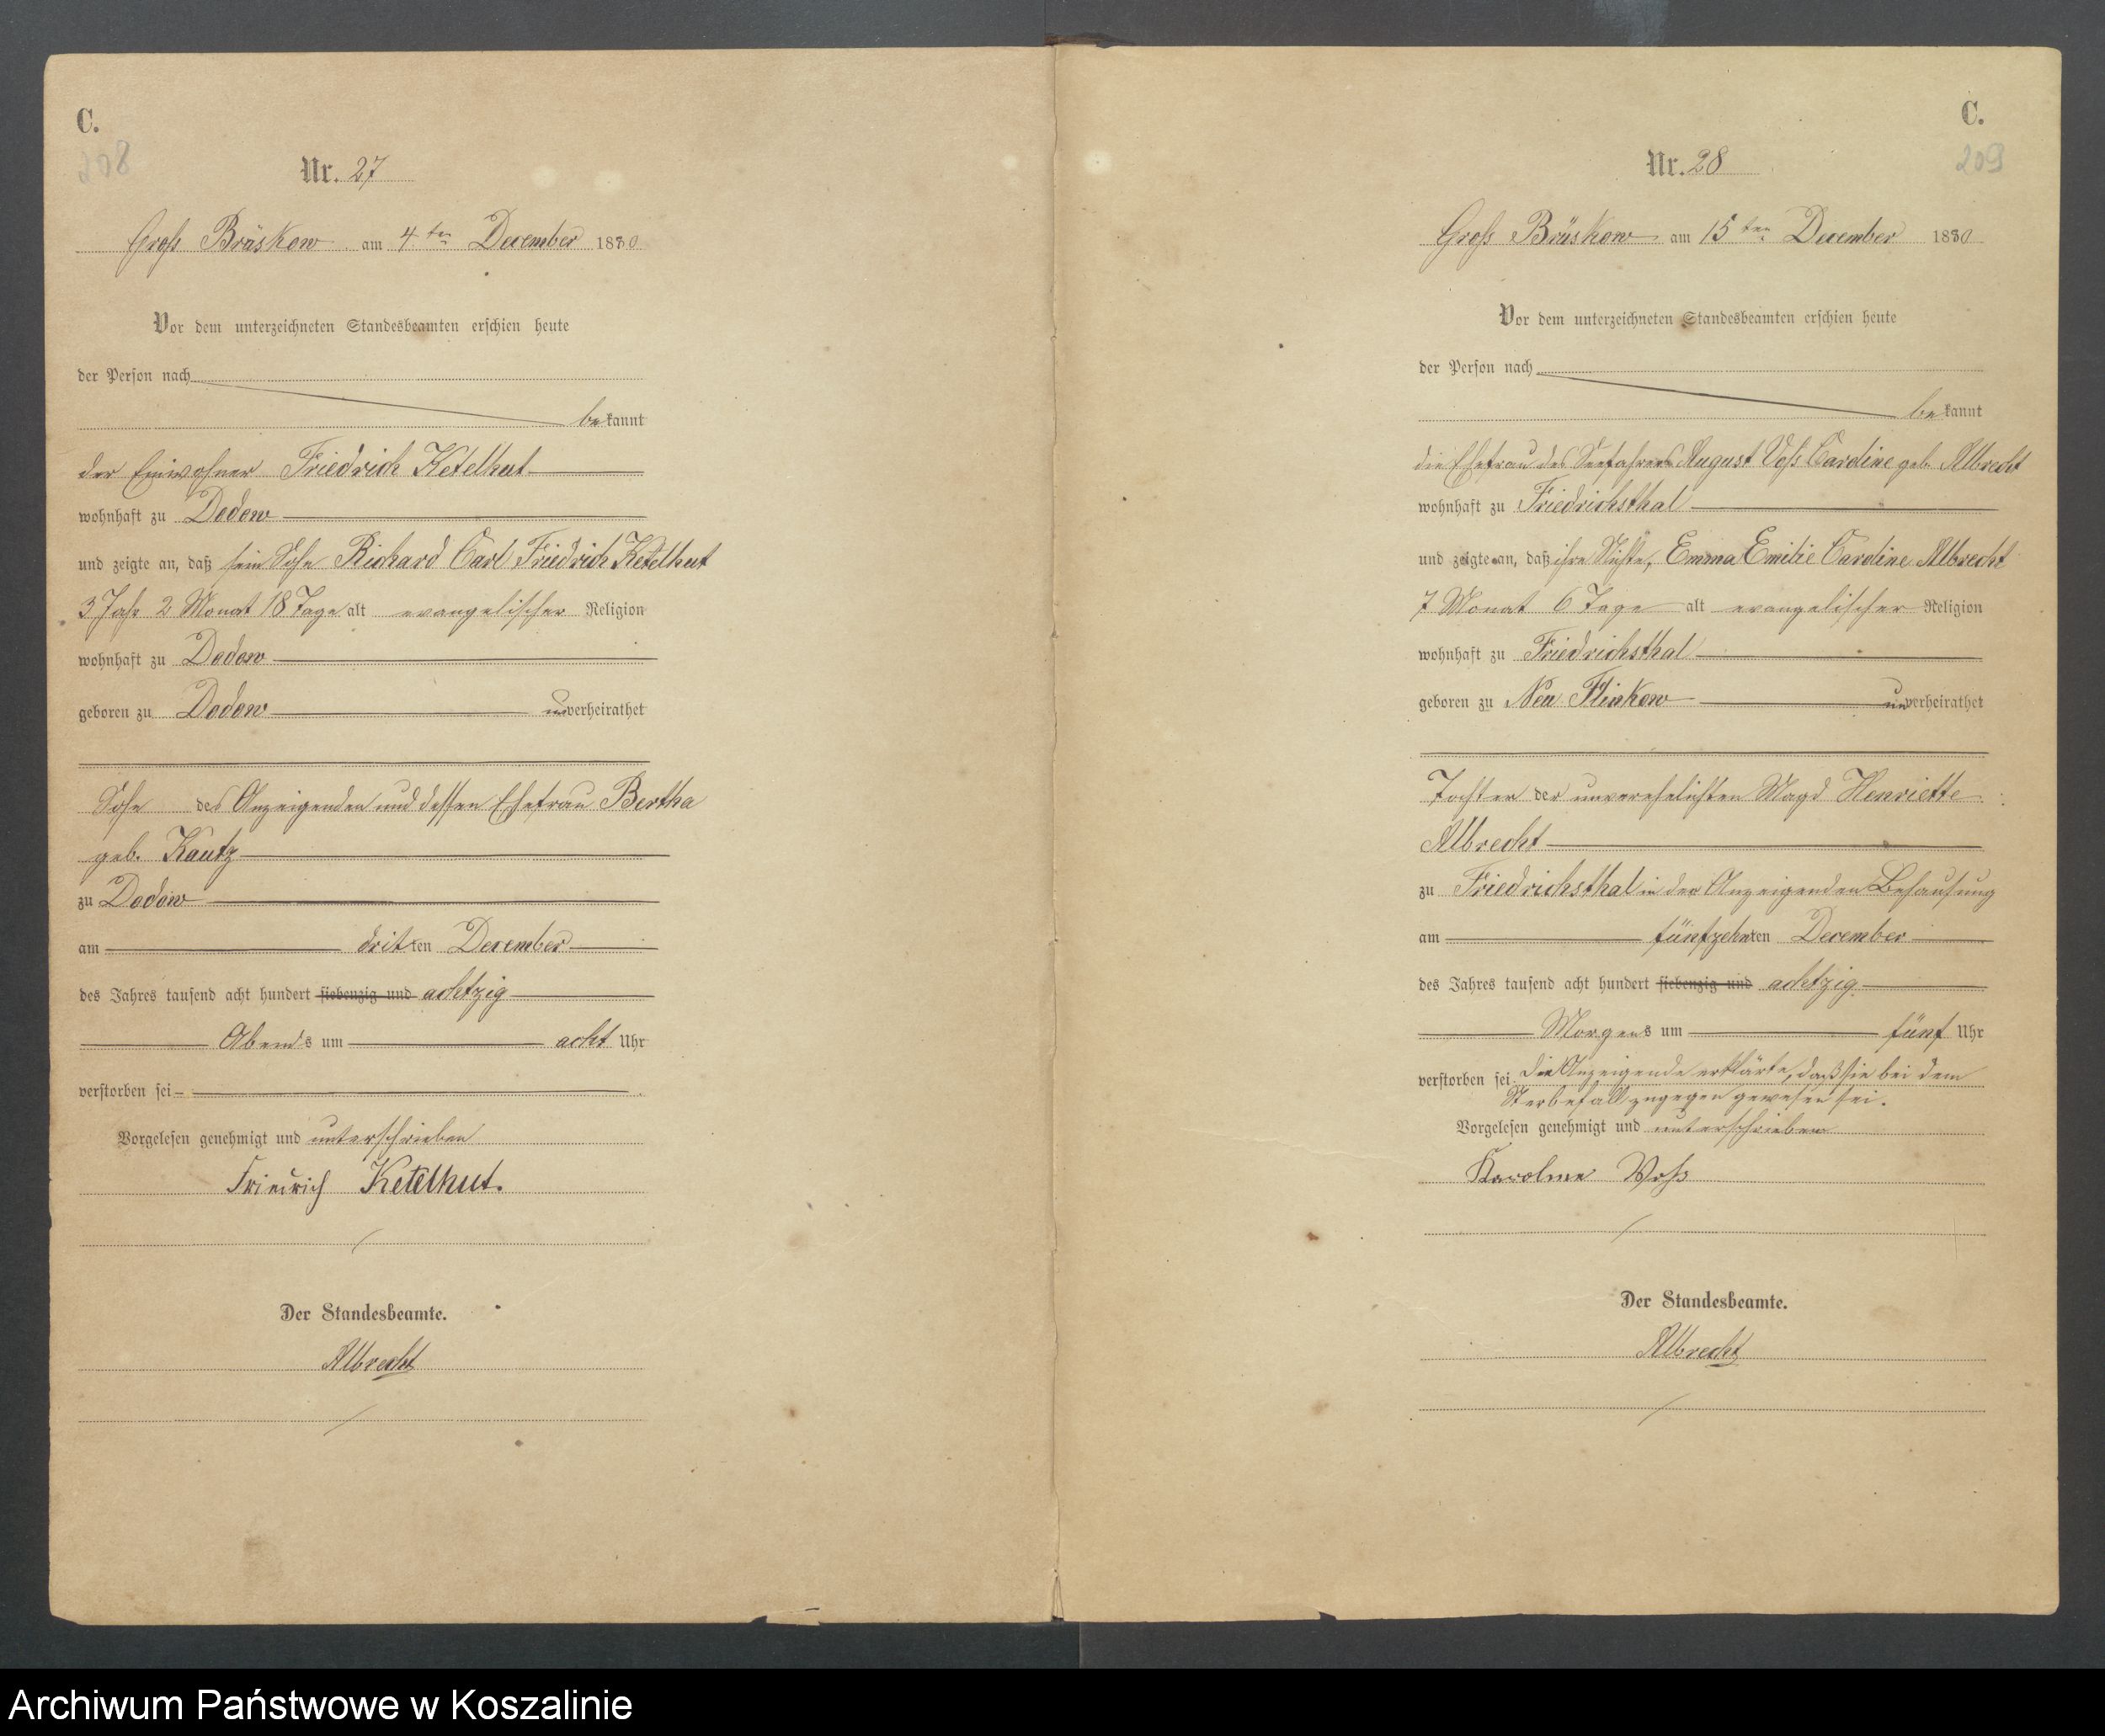 C.
208
Nr. 27
Groß Brüskow am 4ten December 1880
Vor dem unterzeichneten Standesbeamten erschien heute
der Person nach
bekannt
der Einwohner Friedrich Ketelhut
wohnhaft zu Dodow
und zeigte an, daß sein Sohn Richard Carl Friedrich Ketelhut
3 Jahr 2 Monat 18 Tage alt evangelischer Religion
wohnhaft zu Dodow
geboren zu Dodow unverheirathet
Sohn des Anzeigenden und dessen Ehefrau Bertha
geb. Kautz
zu Dodow
am dritten December
des Jahres tausend acht hundert siebenzig und achtzig
Abends um acht Uhr
verstorben sei
Vorgelesen genehmigt und unterschrieben
Friedrich Ketelhut.
Der Standesbeamte.
Albrecht
C.
209
Nr. 28
Groß Brüskow am 15ten December 1880
Vor dem unterzeichneten Standesbeamten erschien heute
der Person nach
bekannt
die Ehefrau des Seefahrers August Voß Caroline geb. Albrecht
wohnhaft zu Friedrichsthal
und zeigte an, daß ihre Nichte, Emma Emilie Caroline Albrecht
7 Monat 6 Tage alt evangelischer Religion
wohnhaft zu Friedrichsthal
geboren zu Neu Flinkow unverheirathet
Tochter der unverehelichten Magd Henriette
Albrecht
zu Friedrichsthal in der Anzeigenden Behausung
am fünfzehnten December
des Jahres tausend acht hundert siebenzig und achtzig
Morgens um fünf Uhr
verstorben sei. Die Anzeigende erklärte, daß sie bei dem
Sterbefall zugegen gewesen sei.
Vorgelesen genehmigt und unterschrieben
Karoline Voß
Der Standesbeamte.
Albrecht
Archiwum Państwowe w Koszalinie